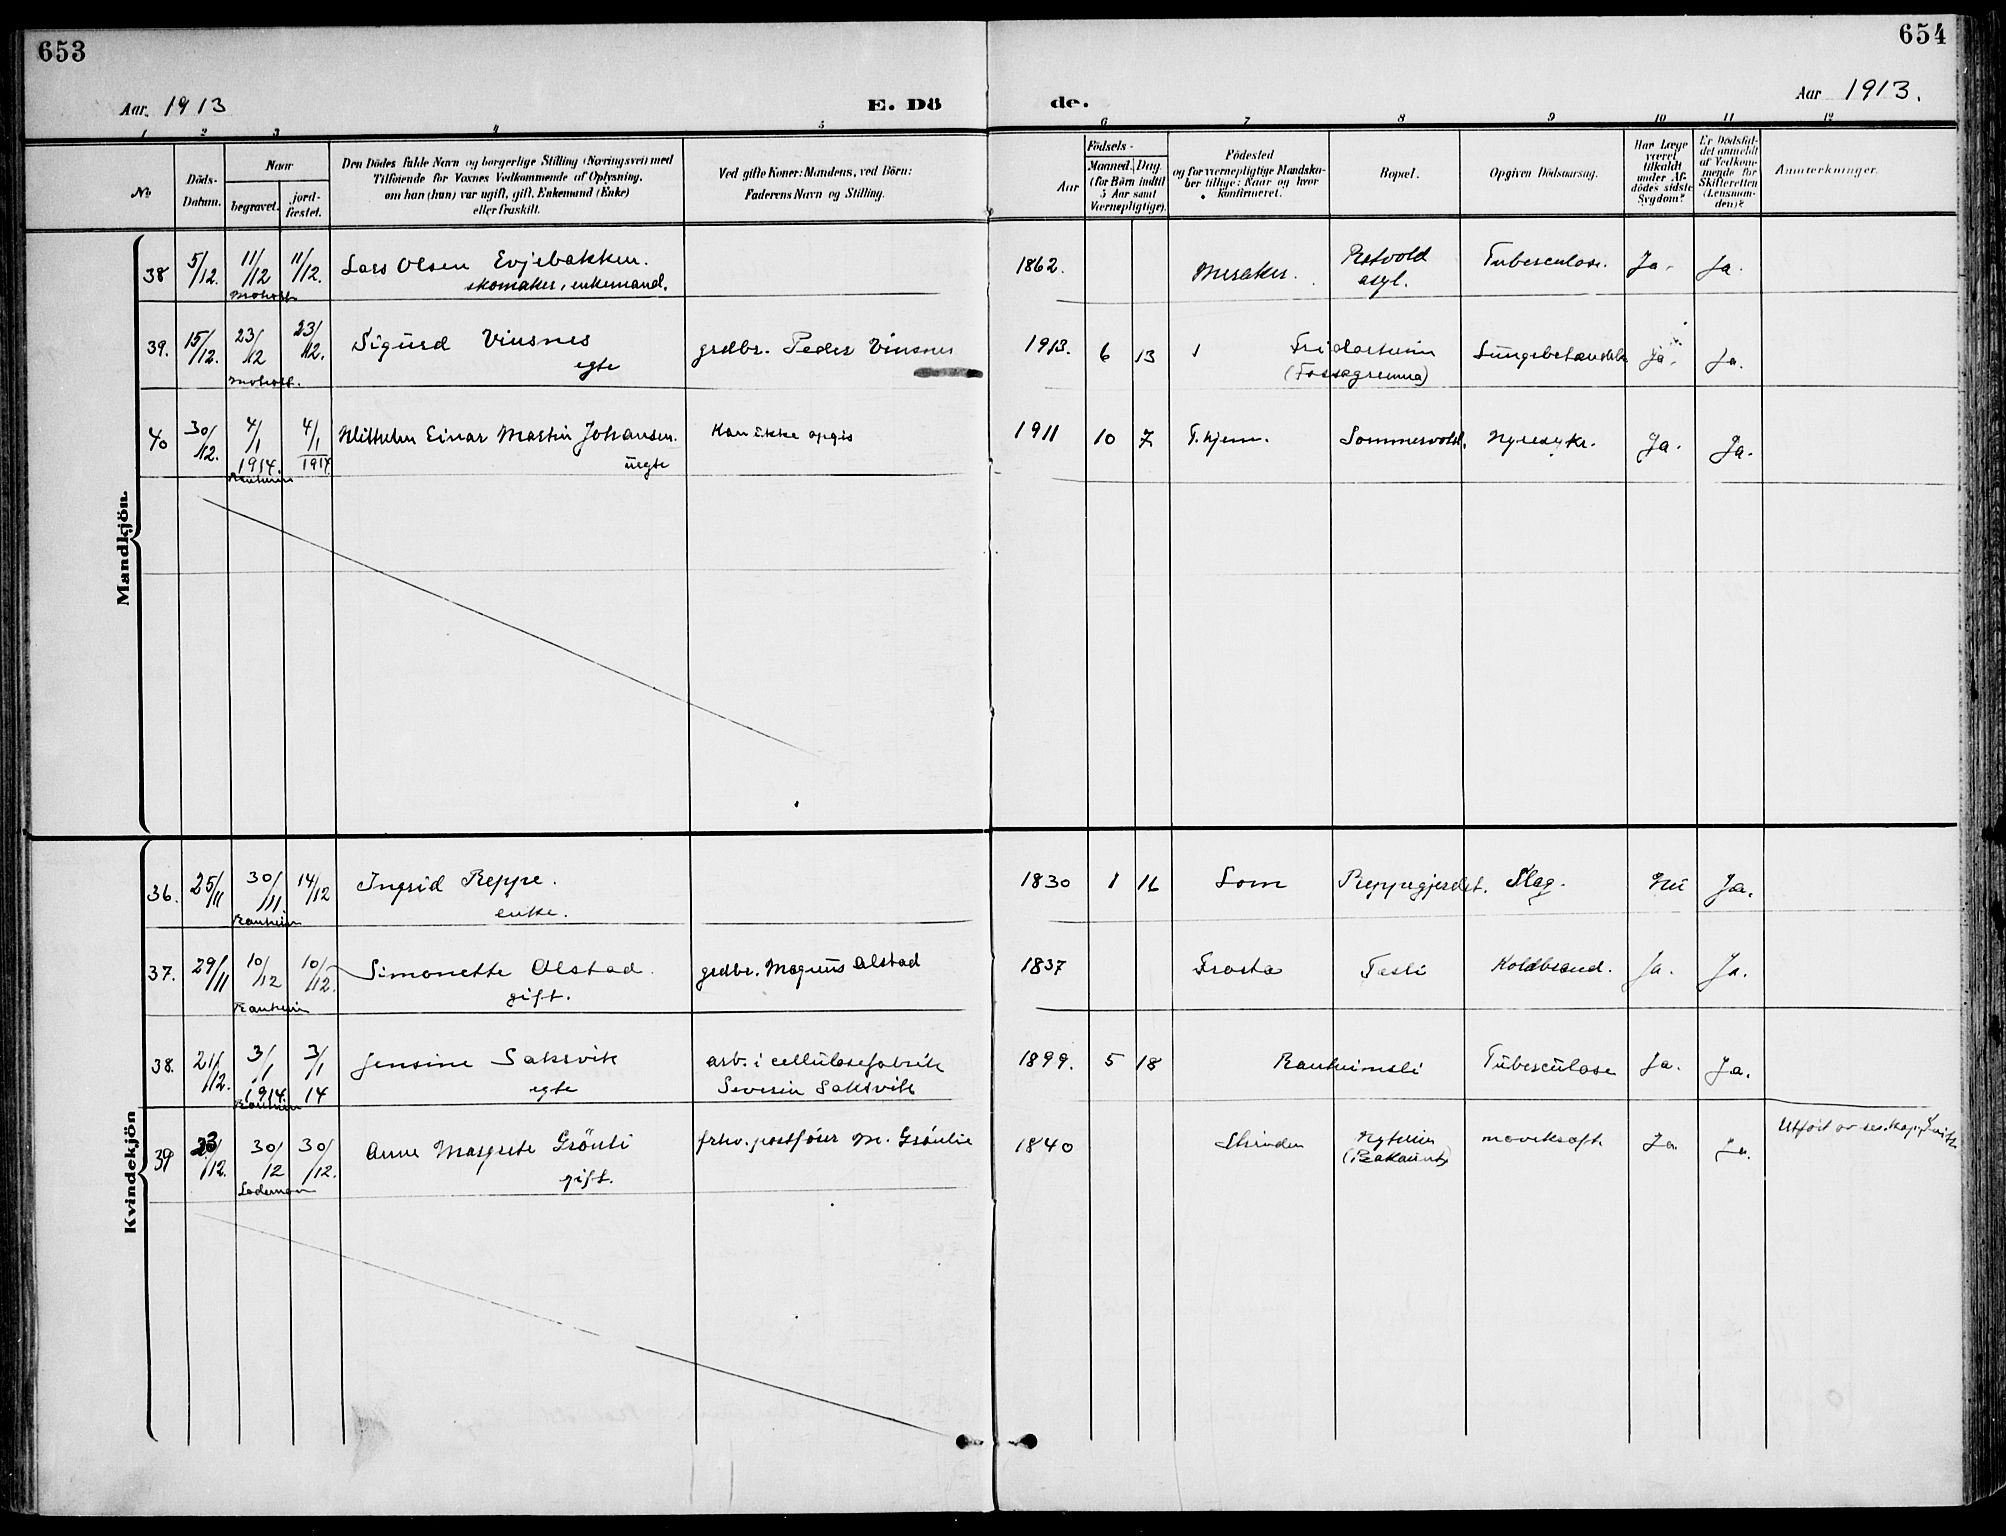 653
654
Aar. 1913
E. Dö
de.
Aar 1913.
1 2 3 4 5 6 7 8 9 10 11 12
No
Döds-
Datum.
Naar
begravet.
jord-
fæstet.
Den Dödes fulde Navn og borgerlige Stilling (Næringsvei) med
Tilföiende for Voxnes Vedkommende af Oplysning.
om han (hun) var ugift, gift, Enkemand (Enke)
eller fraskilt.
Ved gifte Koner: Mandens, ved Börn:
Faderens Navn og Stilling.
Födsels-
Aar
Maaned. Dag
(for Börn indtil
5 Aar samt
Værnepligtige).
Födested
og for værnepligtige Mandska-
ber tillige: Naar og hvor
konfirmeret.
Bopæl.
Opgiven Dödsaarsag.
Har Læge
været
tilkaldt
under Af-
dödes sidste
Sygdom?
Er Dödsfal-
det anmeldt
af Vedkom-
mende for
Skifteretten
(Lensman-
den)?
Anmærkninger.
Mandkjön.
38 5/12. 11/12 Moholt 11/12. Lars Olsen Evjebakken.
skomaker, enkemand.
1862. Meraker. Ratvold
asyl. Tuberculose. Ja. Ja.
39. 15/12. 23/12 Moholt. 23/12. Sigurd Viusnes
egte
grdbr. Peder Viusnes
1913. 6 13 Fridarheim
(Fossegrenna) Lungebetændelse Ja. Ja.
40 30/12. 4/1 1914. Ranheim 4/1 1914 Wilhelm Einar Martin Johansen.
uegte
Kan ikke opgis
1911 10 7 T.hjem. Sommervold. Nyresyke. Ja. Ja.
Kvindekjön
36. 25/11 30/11 Ranheim 14/12 Ingrid Reppe.
enke.
1830 1 16 Lom Reppegjerdet. Slag. Nei Ja.
37. 29/11 10/12 Ranheim 10/12. Simonette Olstad.
gift.
grdbr. Magnus Olstad
1837 Frosta Tesli Koldbrand. Ja. Ja.
38. 21/12. 3/1 1914. Ranheim 3/1 14 Jensine Saksvik
egte
arb. i cellulosefabrik
Severin Saksvik
1899. 5 18 Ranheimsli Tuberculose Ja. Ja.
39 23/12. 30/12 Lademoen 30/12. Anne Margrete Grönli
gift.
frhv. postförer M. Grönlie
1840 Strinden Nyheim
(Rakaunet) mavekræft Ja. Ja.
Utfört av res. kap.